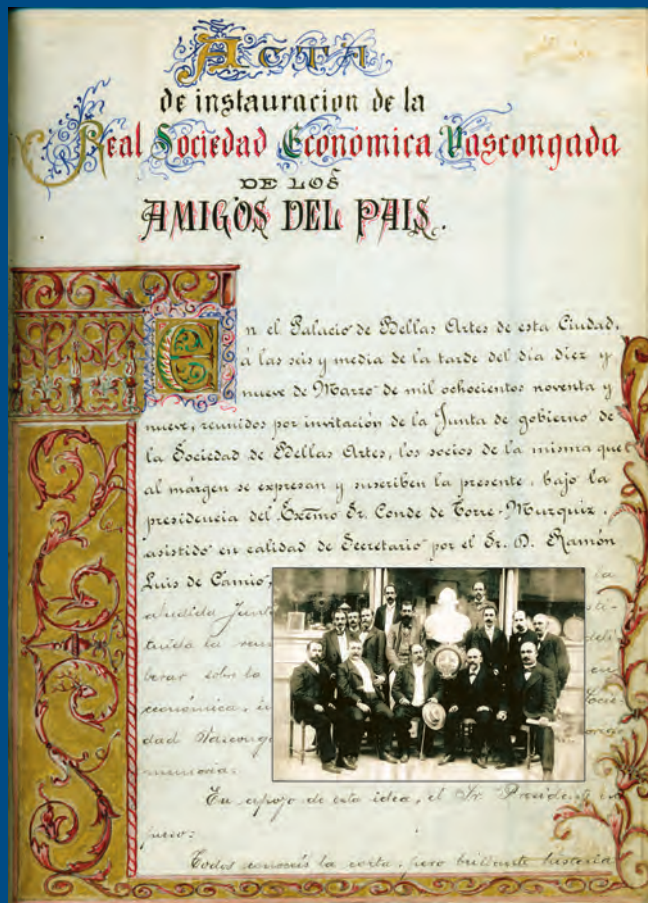 ACTA
de instauracion de la
Real Sociedad Económica Vascongada
DE LOS
AMIGOS DEL PAIS.
En el Palacio de Bellas Artes de esta Ciudad,
á las seis y media de la tarde del día diez y
nueve de Marzo de mil ochocientos noventa y
nueve, reunidos por invitación de la Junta de gobierno de
la Sociedad de Bellas Artes, los socios de la misma que
al márgen se expresan y suscriben la presente, bajo la
presidencia del Exćmo Sr. Conde de Torre-Múzquiz,
asistido en calidad de Secretario por el Sr. D. Ramón
Luis de Camio, la
aludida Junta sti-
tuida la reu deli
berar sobre la en
económica, Socie
dad Vasconga
memoria.
En apoyo de esta idea, el Sr. Presidente ex
puso:
Todos conoceis la corta, pero brillante historia